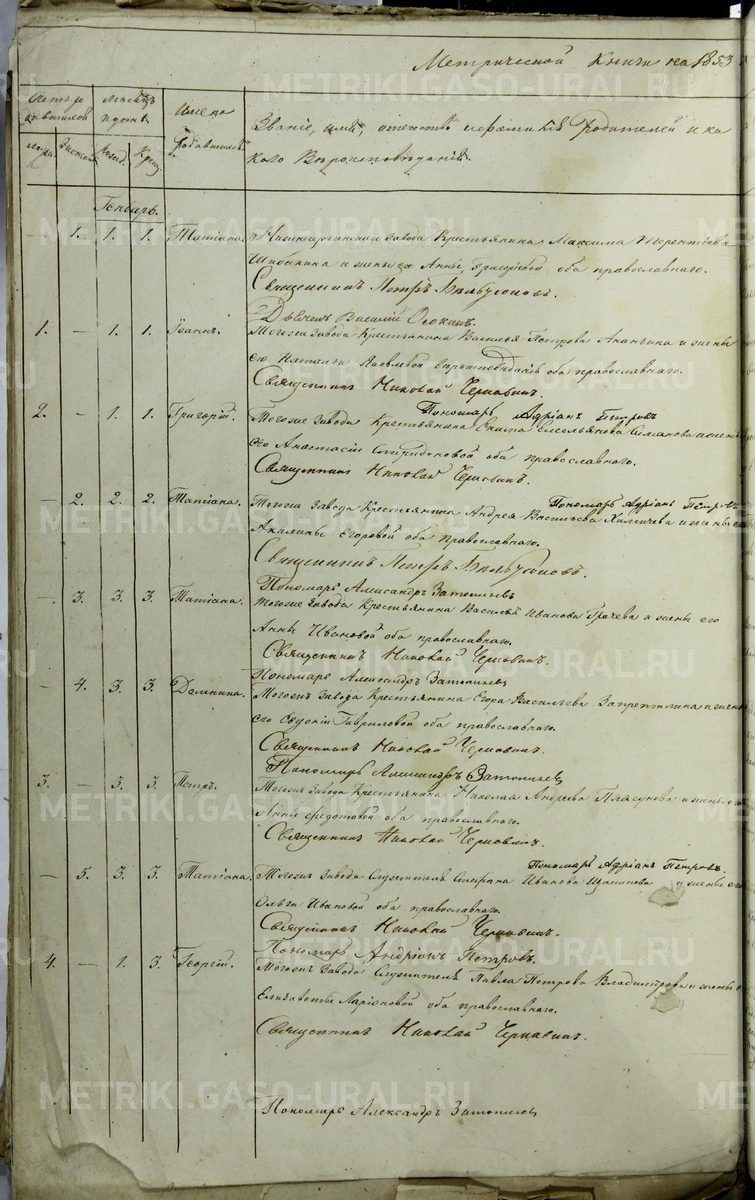 Метрической Книги на 1853
Счетъ родившихся
Мѣсяцъ и день
Имена родившихся
Званіе, имя, отчество и фамилія родителей и ка
кого вѣроисповѣданія.
Генварь.
— 1. 1. 1. Татіана. завода Крестьянина Максима Терентіева
и жены его Анны Григорьевой оба православнаго.
Священникъ Петръ
Дьячекъ Василій Осокинъ.
1. — 1. 1. Іоаннъ. Тогоже завода Крестьянина Василья Петрова Ананьина и жены
его Натальи Яковлевой вѣроисповѣданія оба православнаго.
Священникъ Николай Черновинъ.
Пономарь Адріанъ Петровъ
2. — 1. 1. Григорій. Тогоже завода Крестьянина Екима Емельянова и жены
его Анастасіи Спиридоновой оба православнаго.
Священникъ Николай Черновинъ.
Пономарь Адріанъ Петровъ
— 2. 2. 2. Татіана. Тогоже завода Крестьянина Андрея Васильева и жены его
Акилины Егоровой оба православнаго.
Священникъ Петръ
Пономарь Александръ Затопляевъ
— 3. 3. 3. Татіана. Тогоже завода Крестьянина Василья Иванова Грачева и жены его
Анны Ивановой оба православнаго.
Священникъ Николай Черновинъ.
Пономарь Александръ Затопляевъ
— 4. 3. 3. Домнина. Тогоже завода Крестьянина Егора Васильева и жены
его Евдокіи Гавриловой оба православнаго.
Священникъ Николай Черновинъ.
Пономарь Александръ Затопляевъ
3. — 3. 3. Петръ. Тогоже завода Крестьянина Николая Андреева Плясунова и жены его
Анны Федотовой оба православнаго.
Священникъ Николай Черновинъ.
Пономарь Адріанъ Петровъ.
— 5. 3. 3. Татіана. Тогоже завода Служителя Стефана Иванова Щапинова и жены его
Ольги Ивановой оба православнаго.
Священникъ Николай Черновинъ.
Пономарь Андріанъ Петровъ.
4. — 1. 3. Георгій. Тогоже завода Служителя Павла Петрова Владимірова и жены его
Елизаветы Ларіоновой оба православнаго.
Священникъ Николай Черновинъ.
Пономарь Александръ Затопляевъ
METRIKI.GASO-URAL.RU